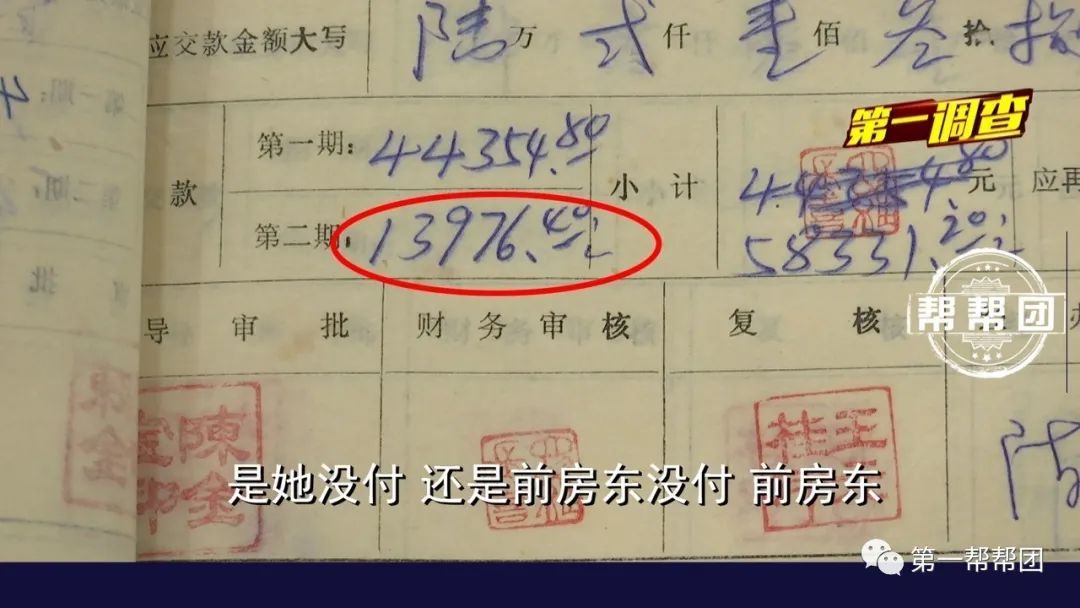 应交款金额大写 陆 万 弍 仟 壹 佰 叁 拾
第一调查
第一期：44354.80
款
小计 44354.80 元 应再
第二期：13976.40
58331.20
帮帮团
导审批 财务审核 复核
陳金
王桂
是她没付 还是前房东没付 前房东
第一帮帮团